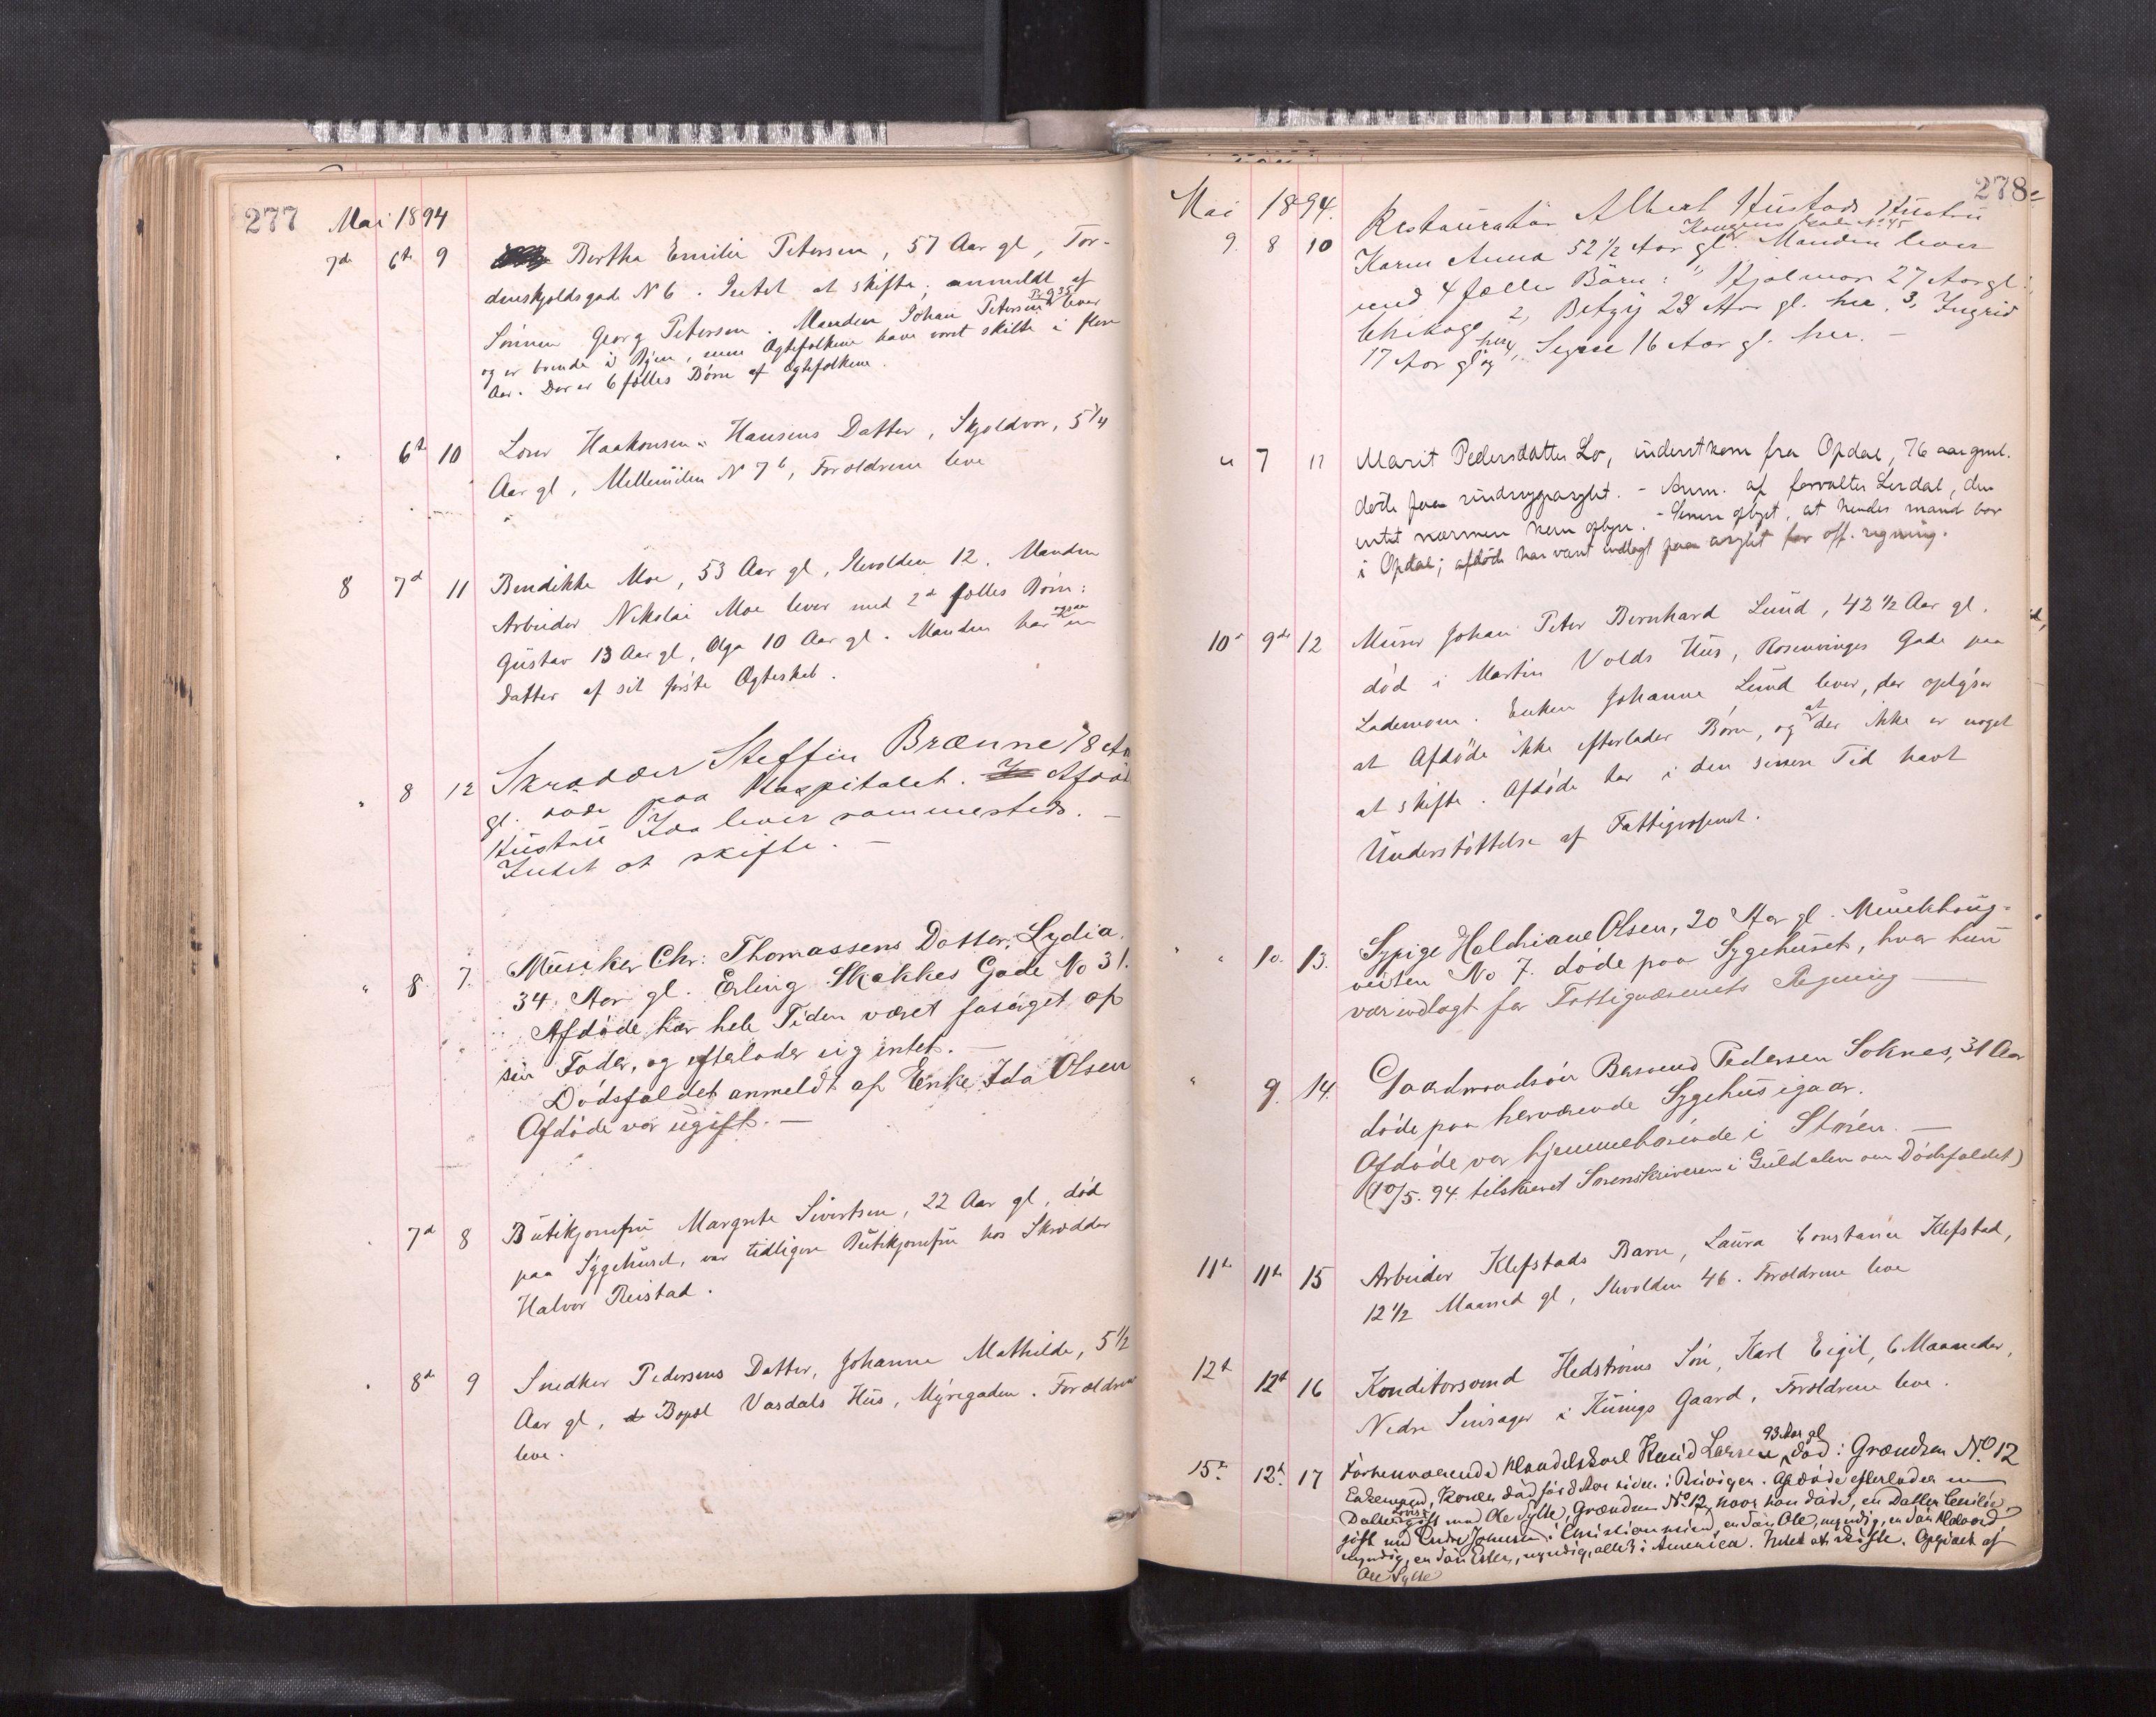 277 Mai 1894
7de 6te 9 Bertha Emilie Petersen, 57 Aar gl, Tor-
denskjoldsgade N 6. Intet at skifte; anmeldt af
Sønnen Georg Petersen. Manden Johan Petersen lever
og er boende i Byen, men Ægtefolkene have været skilte i flere
Aar. Der er 6 fælles Børn af Ægtefolkene.
" 6te 10 Lorv Haakonsen Hansens Datter, Skjoldvor, 5 1/4
Aar gl, Mellemilen N 7b, Forældrene leve
8 7de 11 Bendikke Moe, 53 Aar gl, Ilevolden 12. Manden
Arbeider Nikolai Moe lever med 2de fælles Børn:
Gustav 13 Aar gl, Olga 10 Aar gl. Manden har ogsaa en
Datter af sit første Ægteskab.
" 8 12 Skrædder Steffen Brænne 78 Aar
gl. døde paa Hospitalet. Afdødes
Hustru Ida lever sammesteds. —
Intet at skifte. —
" 8 7. Musiker Chr: Thomassens Datter, Lydia.
34. Aar gl. Erling Skakkes Gade No 31.
Afdøde har hele Tiden været forsørget af
sin Fader, og efterlader sig intet. —
Dødsfaldet anmeldt af Enke Ida Olsen
Afdøde var ugift. —
" 7de 8 Butikjomfru Margrete Sivertsen, 22 Aar gl, død
paa Sygehuset, var tidligere Butikjomfru hos Skrædder
Halvor Reistad.
" 8de 9 Snedker Pedersens Datter, Johanne Mathilde, 5 1/2
Aar gl, Bopæl Vasdals Hus, Myregaden. Forældrene
leve.
Mai 1894. 278
9. 8 10 Restauratør Albert Hustads Hustru
Kongens Gade No 45
Karen Anna 52 1/2 Aar gl. Manden lever
med 4 fælles Børn: Hjalmar 27 Aar gl.
Chikago 2, Betzy 28 Aar gl. her. 3, Ingrid
17 Aar gl her og 4, Signe 16 Aar gl. her. —
" 7 11 Marit Pedersdatter Lo, inderstkone fra Opdal, 76 aar gml.
døde paa sindsygeasylet. - Anm. af forvalter Lerdal, der
intet nærmere kan oplyse. - Senere oplyst, at hendes mand bor
i Opdal; afdøde har været indlagt paa asylet for off. regning.
10de 9de 12 Murer Johan Peter Bernhard Lund, 42 1/2 Aar gl.
død i Martin Volds Hus, Rosenvinges Gade paa
Lademoen. Enken Johanne Lund lever, der oplyser
at Afdøde ikke efterlader Børn, og at der ikke er noget
at skifte. Afdøde har i den senere Tid havt
Understøttelse af Fattigvæsenet.
" 10. 13. Sypige Haldriane Olsen, 20 Aar gl. Munkhaug-
veiten No 7. døde paa Sygehuset, hvor hun
var indlagt for Fattigvæsenets Regning —
" 9. 14. Gaardmandsøn Baroud Pedersen Soknes, 31 Aar
døde paa herværende Sygehus igaar.
Afdøde var hjemmehørende i Støren. —
(10/5. 94. tilskrevet Sorenskriveren i Guldalen om Dødsfaldet)
11te 11te 15 Arbeider Klefstads Barn, Laura Constance Klefstad,
12 1/2 Maaned gl, Ilevolden 46. Forældrene leve
12te 12te 16 Konditorsvend Hedstrøms Søn, Karl Eigil, 6 Maaneder,
Nedre Sinsager i Kunigs Gaard, Forældrene leve.
15de 12te 17 Forhenværende Handelskarl Knud Larsen 93 Aar gl død i Grændsen No 12
Enkemand, Konen død for 8 Aar siden i Reinvigen. Afdøde efterlader en
Datter Lovise gift med Ole Sylte, Grændsen No 12, hvor han døde, en Datter Cecilie,
gift med Endre Johnsen i Christiansund, en Søn Ole, myndig, en Søn Halvard
myndig, en Søn Esten, myndig, alle 3 i America. Intet at skifte. Opgivet af
Ole Sylte